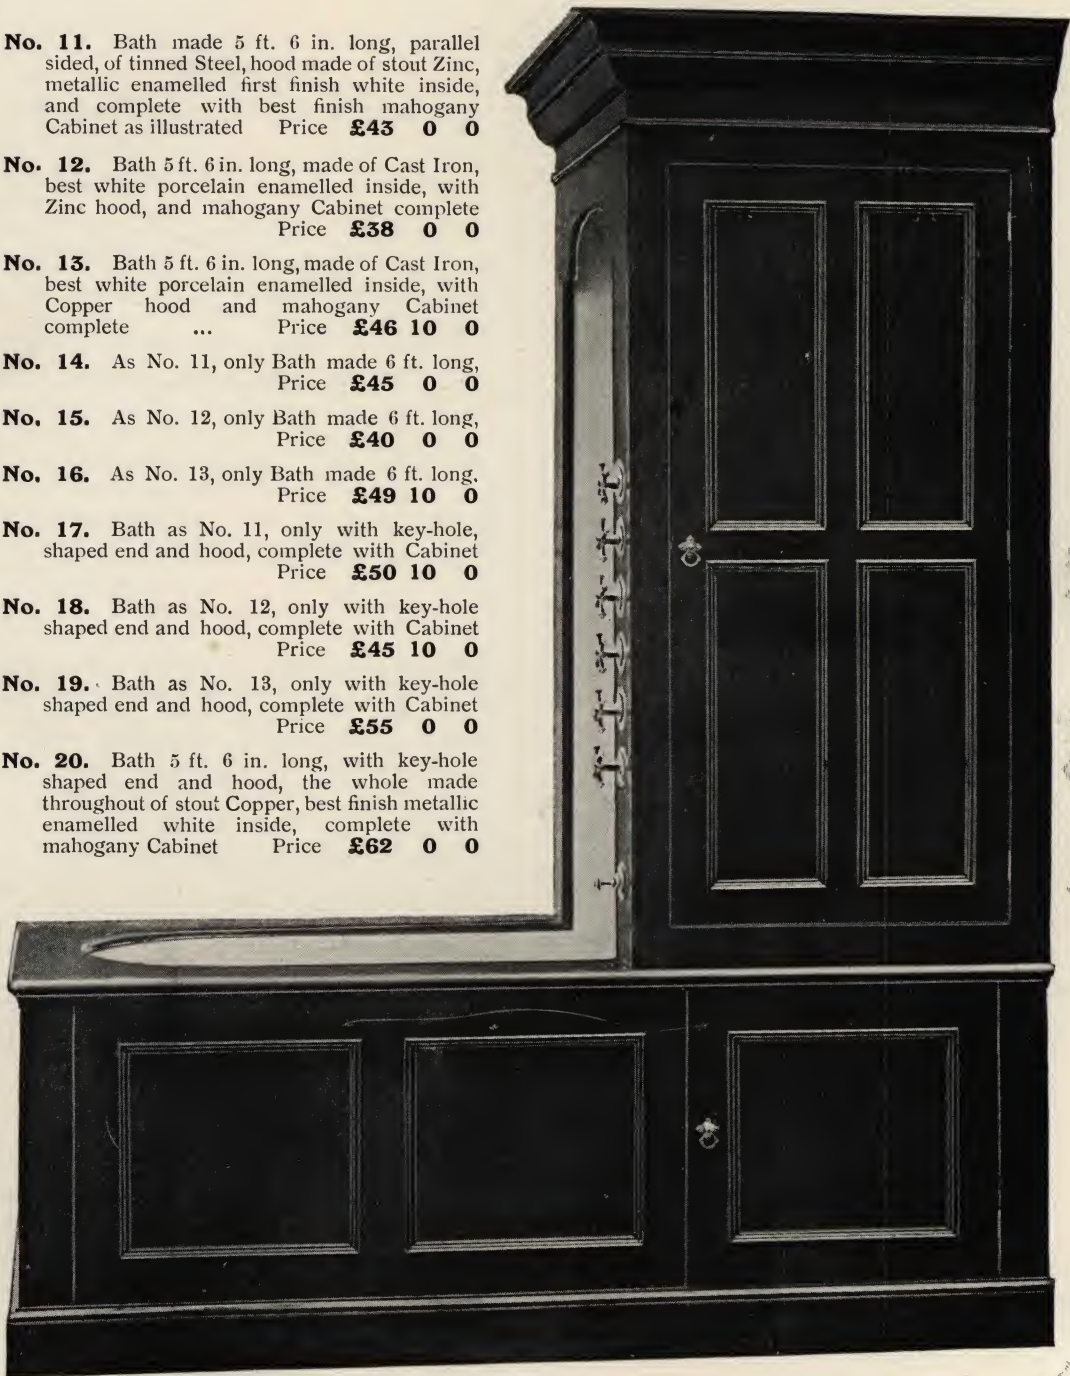 No. 11. Bath made 5 ft. 6 in. long, parallel
sided, of tinned Steel, hood made of stout Zinc,
metallic enamelled first finish white inside,
and complete with best finish mahogany
Cabinet as illustrated Price £43 0 0
No. 12. Bath 5 ft. 6 in. long, made of Cast Iron,
best white porcelain enamelled inside, with
Zinc hood, and mahogany Cabinet complete
Price £38 0 0
No. 13. Bath 5 ft. 6 in. long, made of Cast Iron,
best white porcelain enamelled inside, with
Copper hood and mahogany Cabinet
complete ... Price £46 10 0
No. 14. As No. 11, only Bath made 6 ft. long,
Price £45 0 0
No. 15. As No. 12, only Bath made 6 ft. long,
Price £40 0 0
No. 16. As No. 13, only Bath made 6 ft. long.
Price £49 10 0
No. 17. Bath as No. 11, only with key-hole,
shaped end and hood, complete with Cabinet
Price £50 10 0
No. 18. Bath as No. 12, only with key-hole
shaped end and hood, complete with Cabinet
Price £45 10 0
No. 19. Bath as No. 13, only with key-hole
shaped end and hood, complete with Cabinet
Price £55 0 0
No. 20. Bath 5 ft. 6 in. long, with key-hole
shaped end and hood, the whole made
throughout of stout Copper, best finish metallic
enamelled white inside, complete with
mahogany Cabinet Price £62 0 0